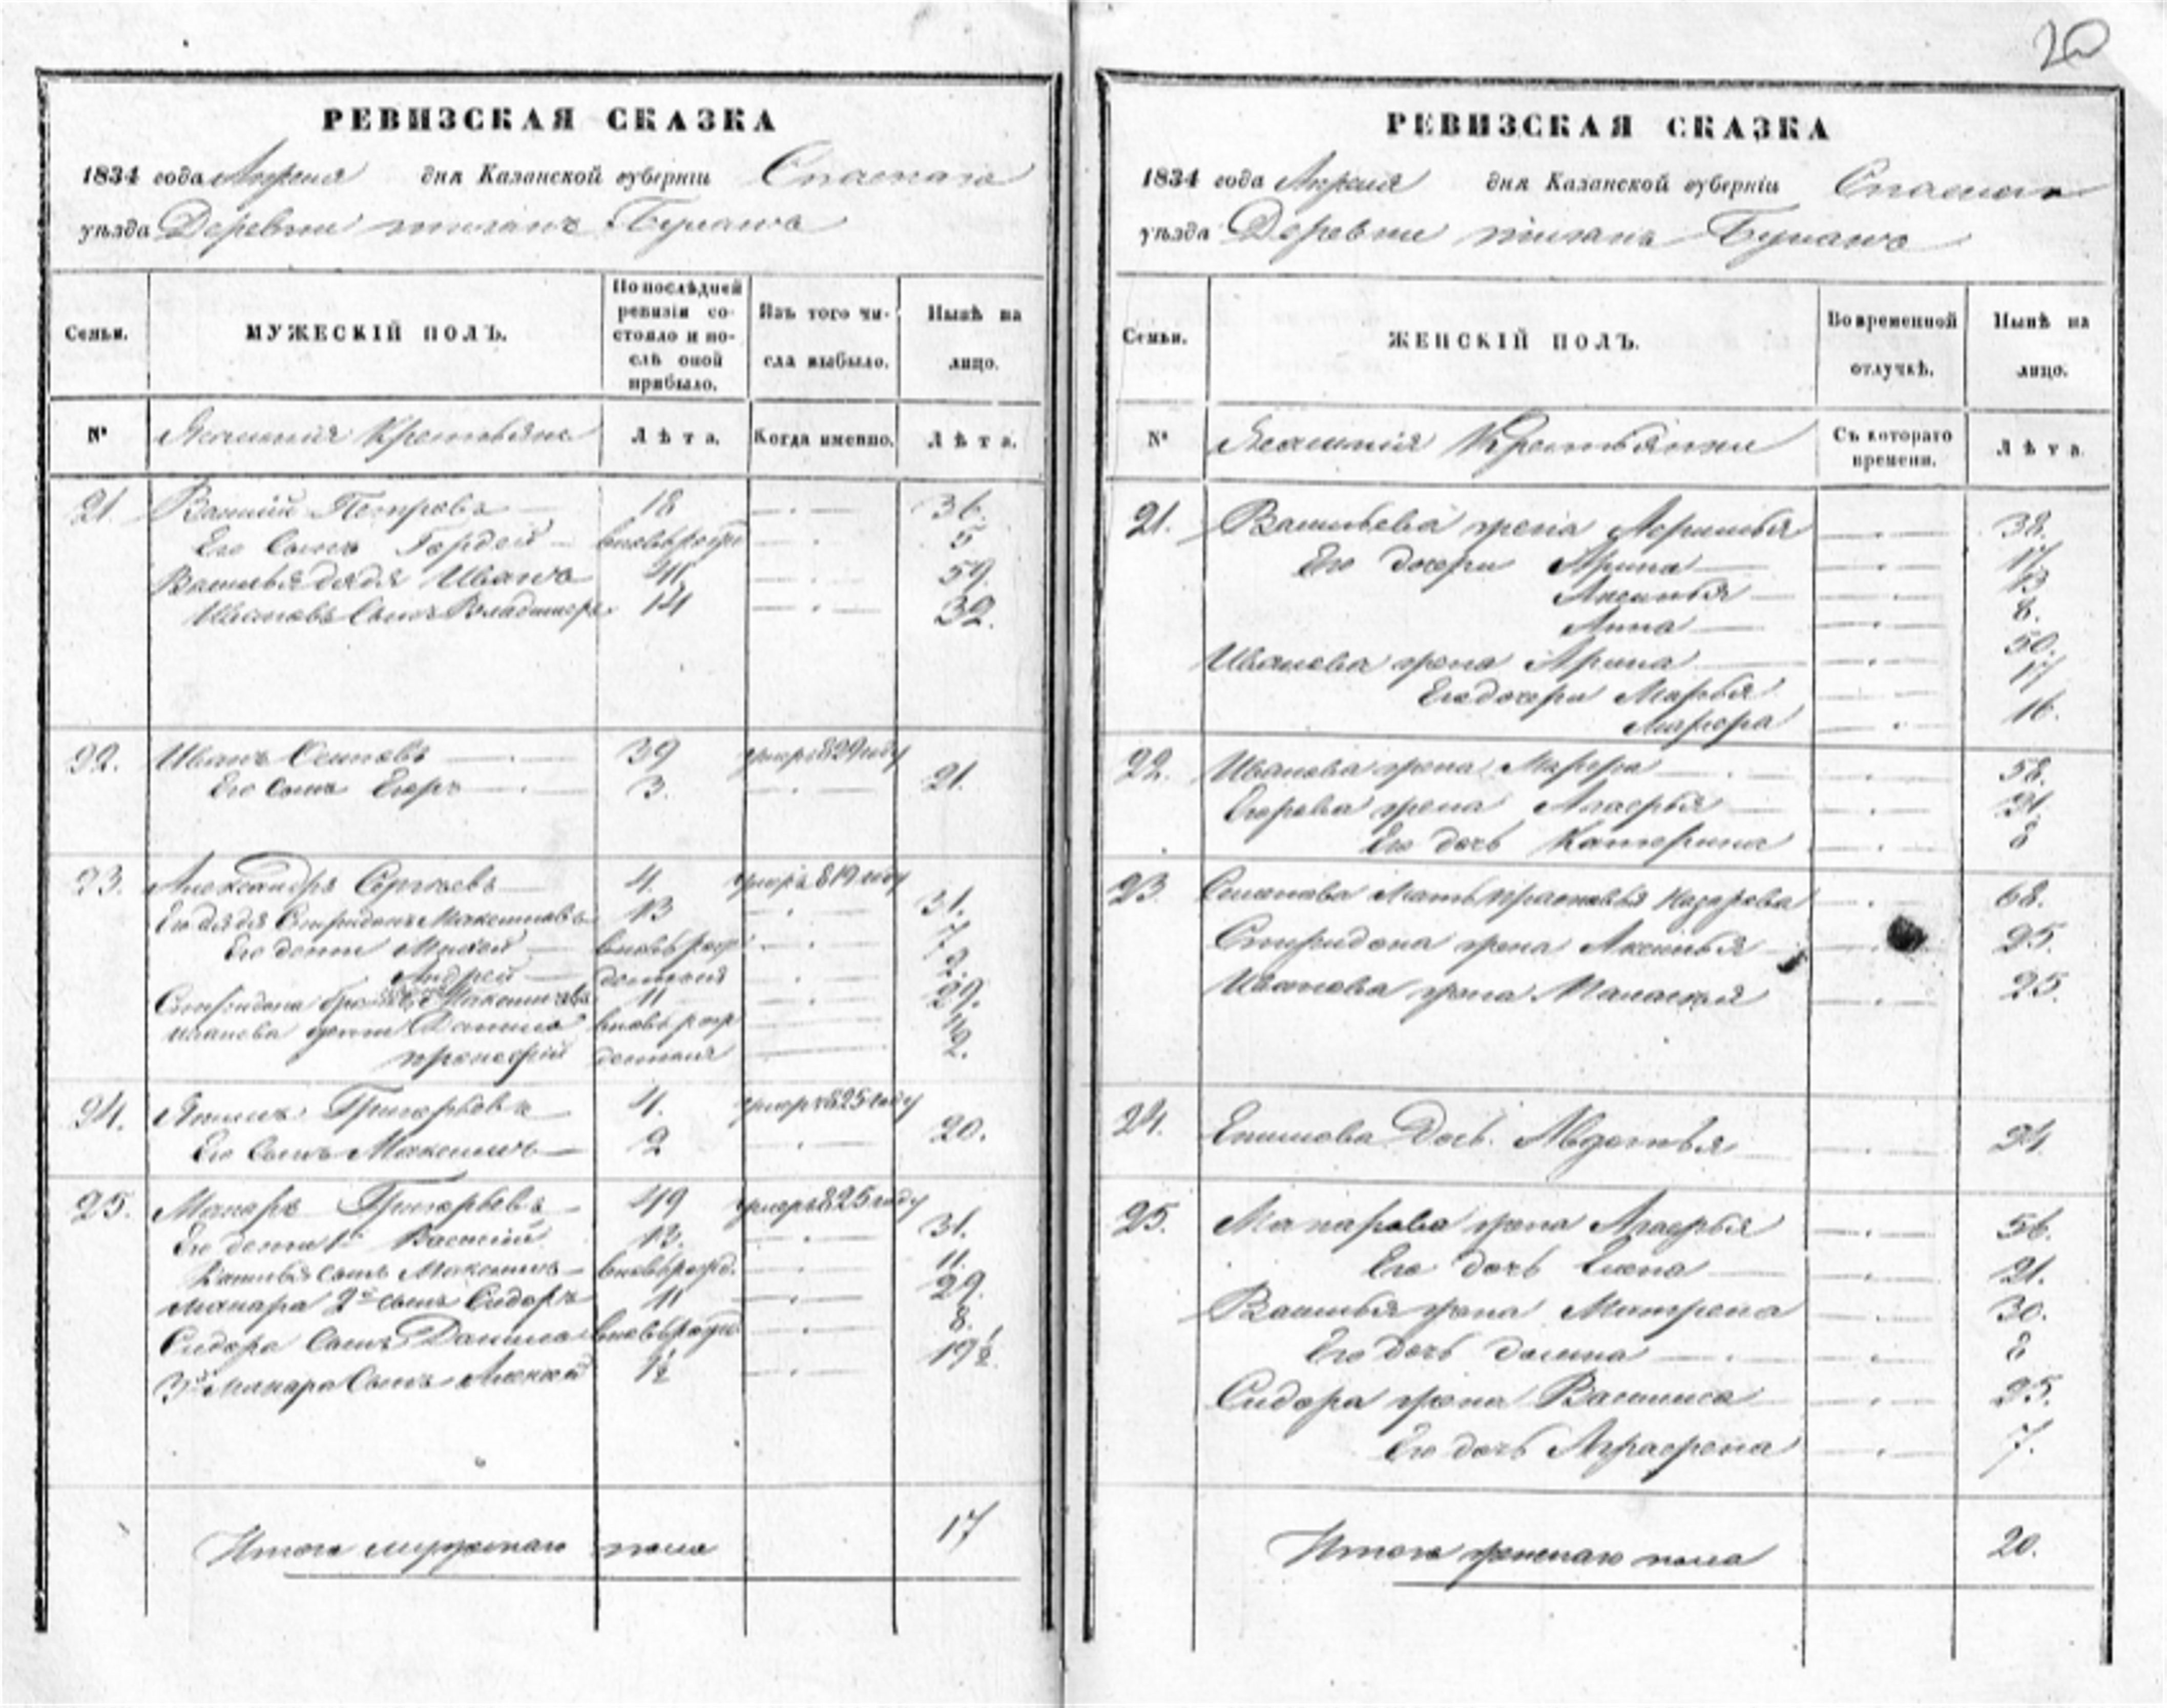 20
РЕВИЗСКАЯ СКАЗКА
1834 года Апреля дня Казанской губернiи Спаскаго
уѣзда Деревни Буланъ
Семьи.
МУЖЕСКIЙ ПОЛЪ.
По послѣдней ревизiи состояло и послѣ оной прибыло.
Изъ того числа выбыло.
Нынѣ на лицо.
№
Ясашныя Крестьяне
Лѣта.
Когда именно.
Лѣта.
21. Василiй Петровъ 18 36.
Его Сынъ Гордей вновь рожд 5
Василья дядя Иванъ 41 59.
Ивановъ Сынъ Владимеръ 14 32.
22. Иванъ Осиповъ 39 умеръ 829 году
Его сынъ Егоръ 3. 21.
23. Александръ Сергѣевъ 4. умеръ 819 году
Его дядя Спиридонъ Максимовъ 13 31.
Его дети Михей вновь рож 7
Андрей 2.
Спиридона братъ Максимовъ 11 29.
Иванова дети Данила вновь рож
прокофiй 2.
24. Григорьевъ 4. умеръ 825 году
Его Сынъ Максимъ 2 20.
25. Макаръ Григорьевъ 49 умеръ 825 году
Его дети 1й Василiй 13. 31.
Василья сынъ Максимъ вновь рожд. 11.
Макара 2й сынъ Сидоръ 11 29.
Сидора Сынъ Данила вновь рожд 8.
3й Макара Сынъ Алексей 1½ 19½
Итого мужескаго пола 17
РЕВИЗСКАЯ СКАЗКА
1834 года Апреля дня Казанской губернiи Спаскаго
уѣзда Деревни Буланъ
Семьи.
ЖЕНСКIЙ ПОЛЪ.
Во временной отлучкѣ.
Нынѣ на лицо.
№
Ясашныя Крестьянки
Съ котораго времени.
Лѣта
21. Васильева жена 38.
Его дочери Арина 17
Аксинья 13
Анна 8.
Иванова жена Арина 50.
Его дочери Марья 17
Марфа 16.
22. Иванова жена Марфа 58.
Егорова жена Агафья 21.
Его дочь Катерина 8
23 мать прасковья Назарова 68.
Спиридона жена Аксинья 25.
Иванова жена Маланья 25.
24. Екимова Дочь Авдотья 24
25. Макарова жена Агафья 56.
Его дочь Елена 21.
Василья жена Матрена 30.
Его дочь 8
Сидора жена Василиса 25.
Его дочь Аграфена 7.
Итого женскаго пола 20.